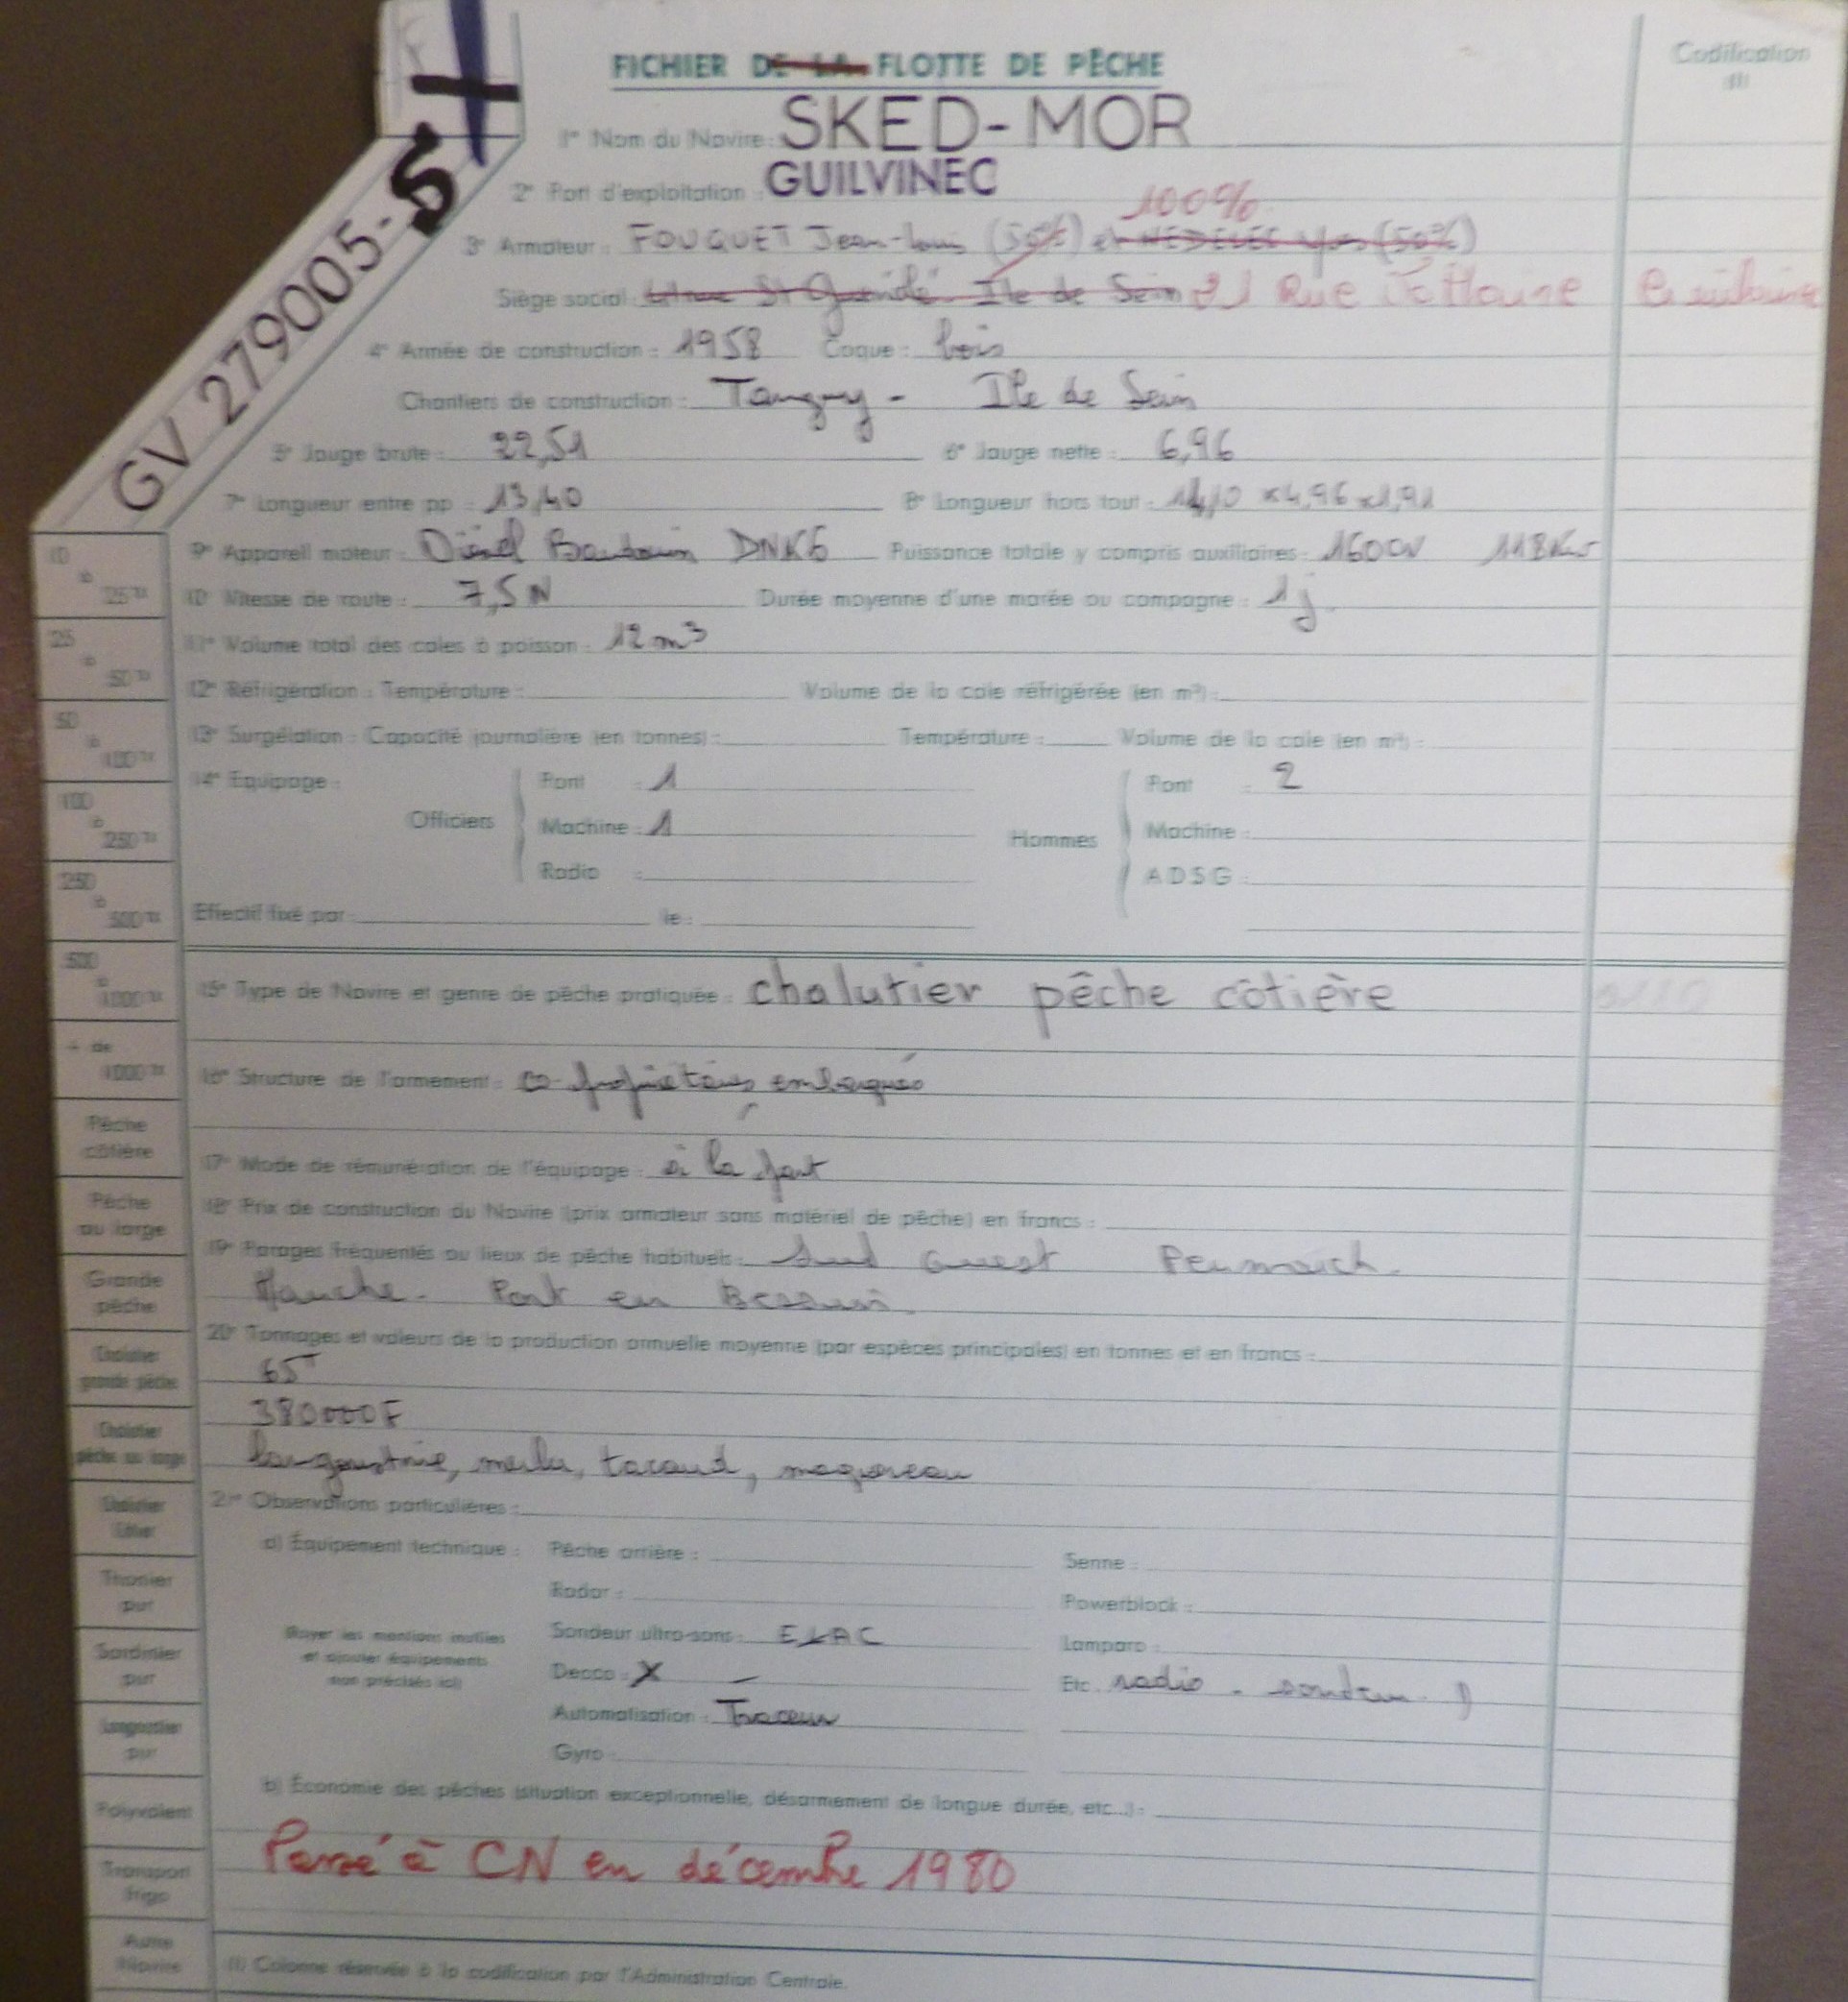 FICHIER DE LA FLOTTE DE PÊCHE
Codification
(1)
1° Nom du Navire : SKED-MOR
2° Port d'exploitation : GUILVINEC
100%
3° Armateur : FOUQUET Jean-Louis (50%) et NEDELEC Yves (50%)
Siège social : St Guénolé. Ile de Sein 21 Rue
GV 279005-S
4° Année de construction : 1958 Coque : bois
Chantiers de construction : Tanguy - Ile de Sein
5° Jauge brute : 22,51 6° Jauge nette : 6,96
7° Longueur entre pp : 13,40 8° Longueur hors tout : 14,10 x 4,96 x 1,91
9° Appareil moteur : Diésel Baudouin DNK6 Puissance totale y compris auxiliaires : 160CV 118Kw
10° Vitesse de route : 7,5 N Durée moyenne d'une marée ou campagne : 1 j
11° Volume total des cales à poisson : 12 m3
12° Réfrigération : Température : Volume de la cale réfrigérée (en m³) :
13° Surgélation : Capacité journalière (en tonnes) : Température : Volume de la cale (en m³) :
14° Equipage :
Officiers
Pont : 1
Machine : 1
Radio :
Hommes
Pont : 2
Machine :
ADSG :
Effectif fixé par : le :
15° Type de Navire et genre de pêche pratiquée : chalutier pêche côtière
16° Structure de l'armement : co-propriétaires embarqués
17° Mode de rémunération de l'équipage : à la part
18° Prix de construction du Navire (prix armateur sans matériel de pêche) en francs :
19° Parages fréquentés ou lieux de pêche habituels : Sud Ouest Penmarch.
Manche. Port en Bessin.
20° Tonnages et valeurs de la production annuelle moyenne (par espèces principales) en tonnes et en francs :
65T
380000F
langoustine, merlu, tacaud, maquereau
21° Observations particulières :
a) Équipement technique : Pêche arrière : Senne :
Radar : Powerblock :
Rayer les mentions inutiles
et ajouter équipements
non précisés ici)
Sondeur ultra-sons : ELAC Lamparo :
Decca : X Etc. radio - sondeur
Automatisation : Traceur
Gyro
b) Économie des pêches (situation exceptionnelle, désarmement de longue durée, etc...) :
Passé à CN en décembre 1980
(1) Colonne réservée à la codification par l'Administration Centrale.
10
à
25 Tx
25
à
50 Tx
50
à
100 Tx
100
à
250 Tx
250
à
500 Tx
500
à
1000 Tx
+ de
1000 Tx
Pêche
côtière
Pêche
au large
Grande
pêche
Chalutier
grande pêche
Chalutier
pêche au large
Chalutier
côtier
Thonier
pur
Sardinier
pur
Langoustier
pur
Polyvalent
Transport
frigo
Autre
Navire